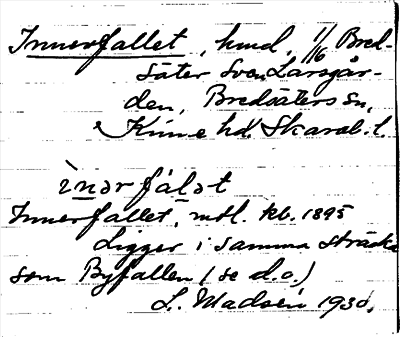 Innerfallet, hmd, 1/6 Bred-
säter Sven Larsgår-
den, Bredsäters sn,
Kinne hd. Skarab. l.
ìnərfálət
Innerfallet, mtl. kb. 1895
Ligger i samma sträcka
som Byfallen (se d.o.)
L. Madsén 1930.